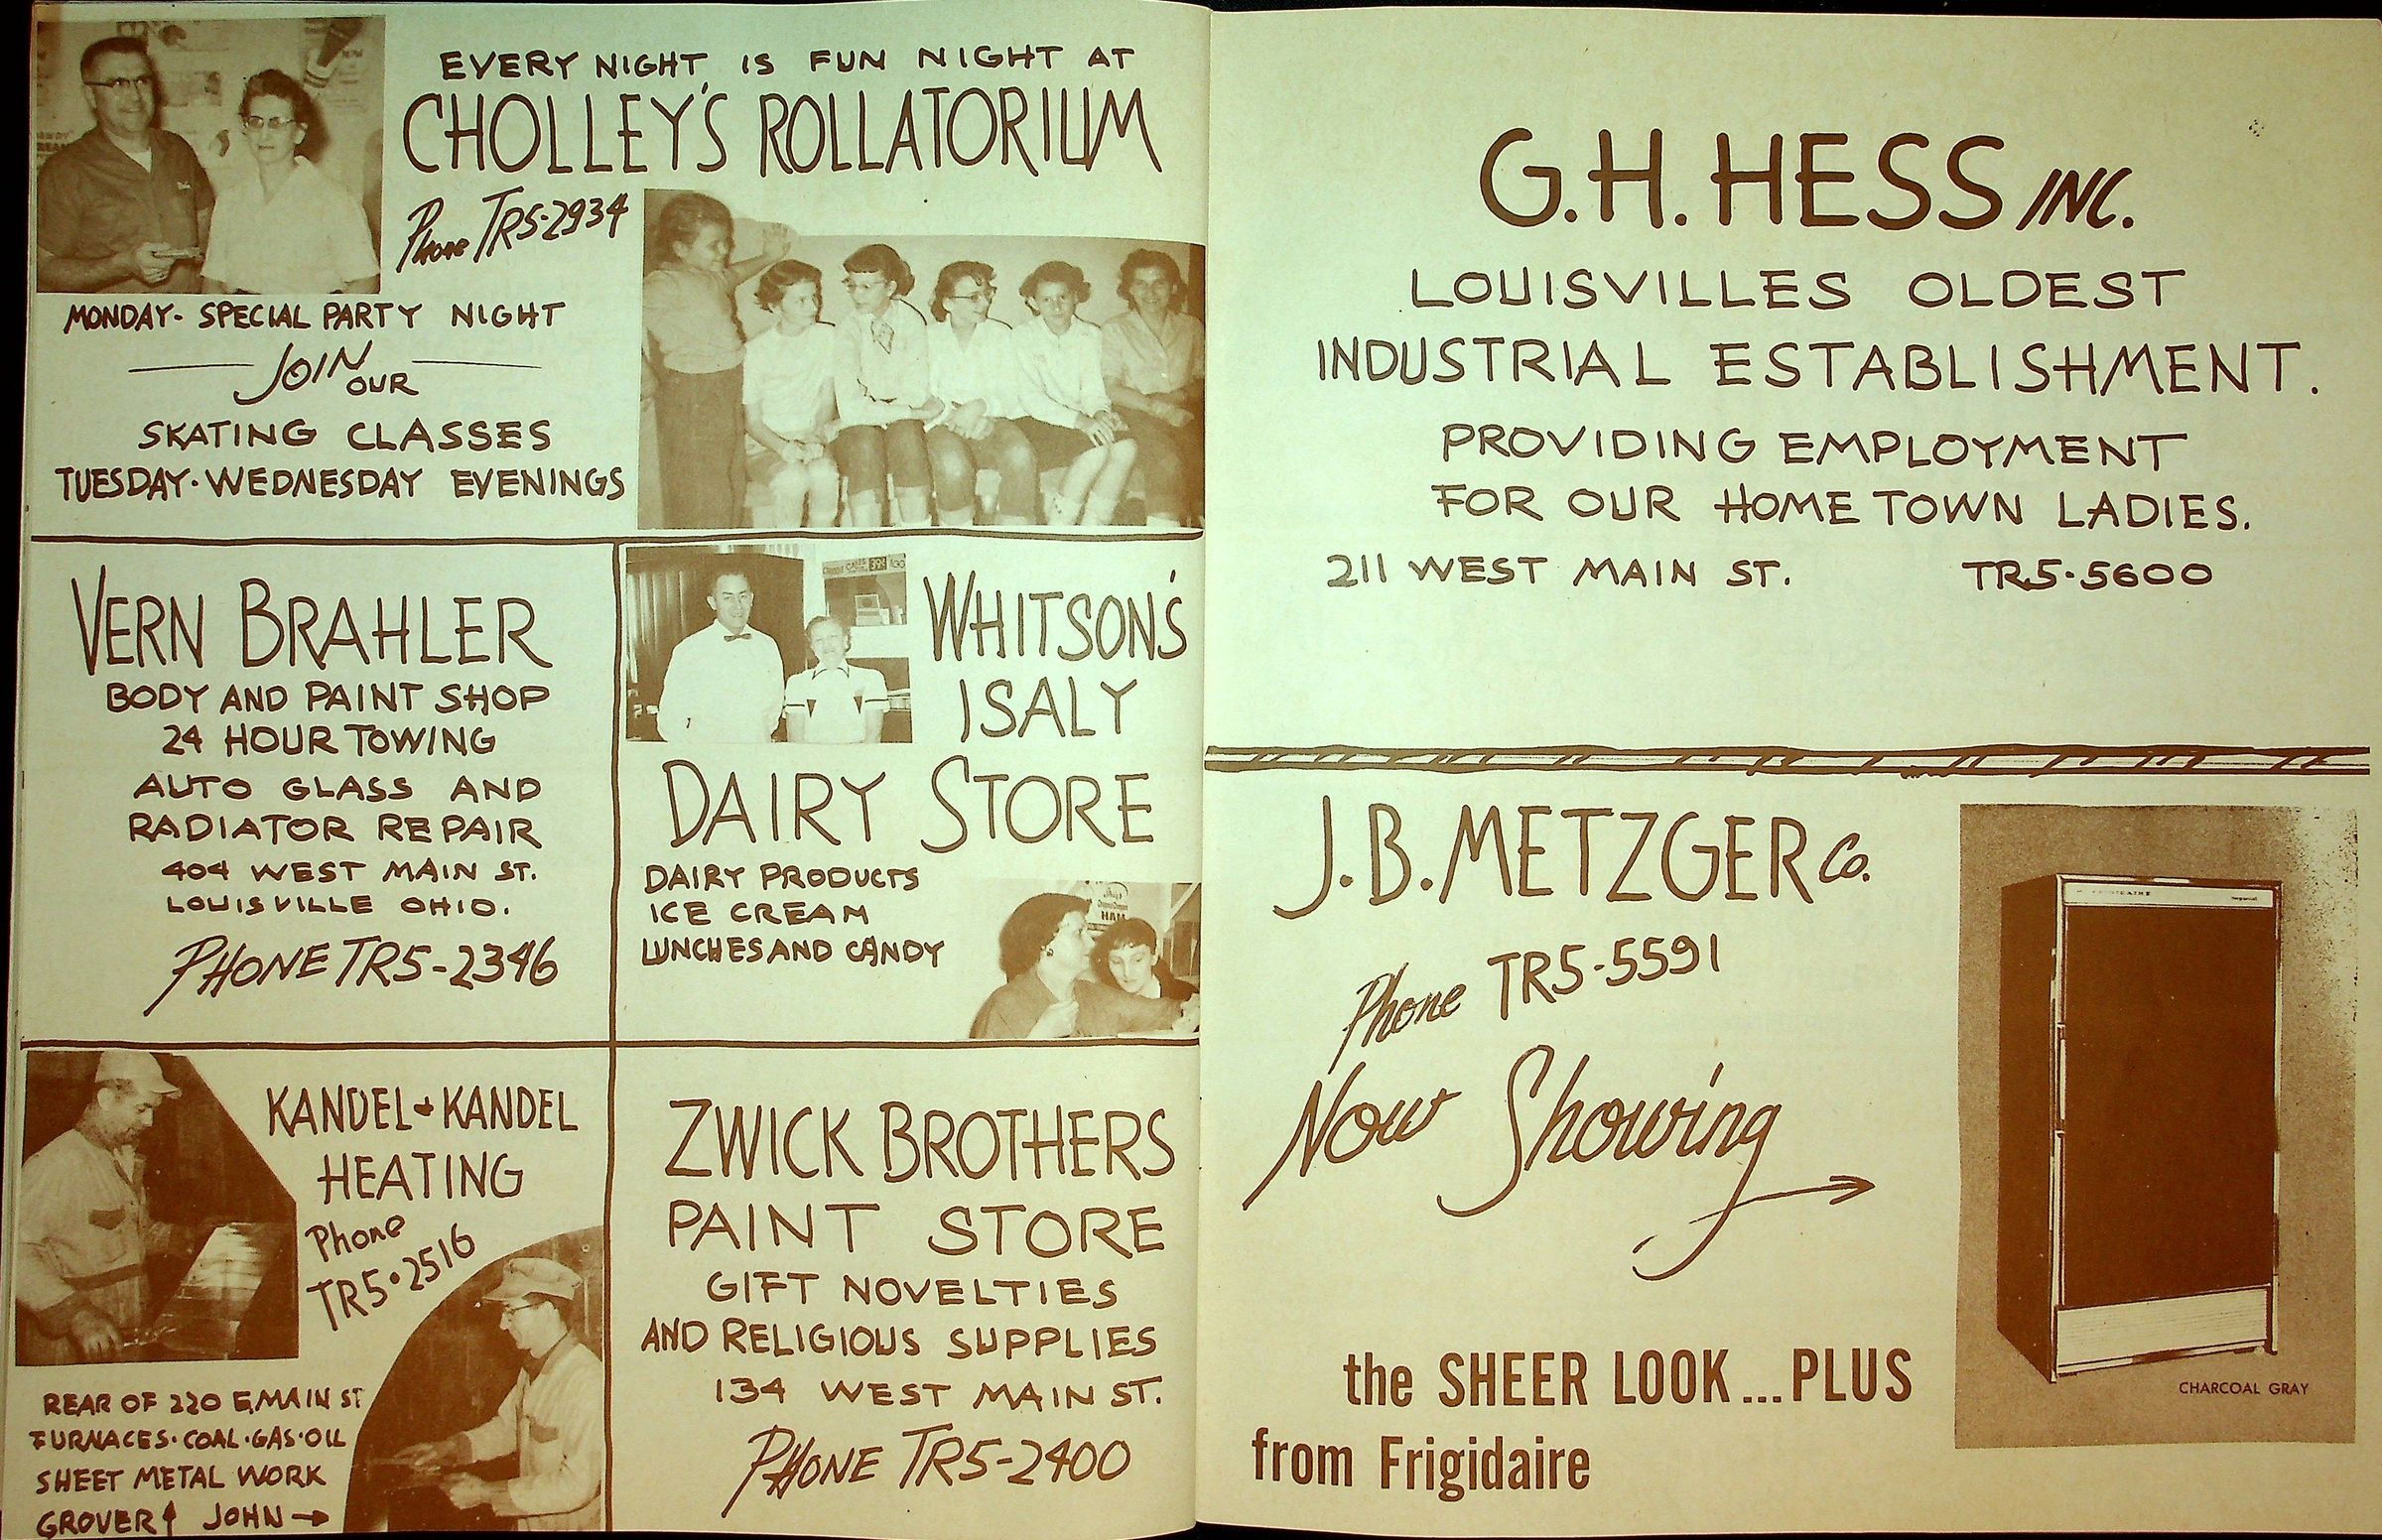 EVERY NIGHT IS FUN NIGHT AT
CHOLLEY'S ROLLATORIUM
Phone TR5-2934
MONDAY- SPECIAL PARTY NIGHT
JOIN OUR
SKATING CLASSES
TUESDAY·WEDNESDAY EVENINGS
VERN BRAHLER
BODY AND PAINT SHOP
24 HOUR TOWING
AUTO GLASS AND
RADIATOR REPAIR
404 WEST MAIN ST.
LOUISVILLE OHIO.
PHONE TR5-2346
WHITSON'S
ISALY
DAIRY STORE
DAIRY PRODUCTS
ICE CREAM
LUNCHES AND CANDY
HAM
KANDEL + KANDEL
HEATING
Phone
TR5·2516
REAR OF 220 E. MAIN ST
FURNACES·COAL·GAS·OIL
SHEET METAL WORK
GROVER↑ JOHN→
ZWICK BROTHERS
PAINT STORE
GIFT NOVELTIES
AND RELIGIOUS SUPPLIES
134 WEST MAIN ST.
PHONE TR5-2400
G.H. HESS INC.
LOUISVILLES OLDEST
INDUSTRIAL ESTABLISHMENT.
PROVIDING EMPLOYMENT
FOR OUR HOME TOWN LADIES.
211 WEST MAIN ST. TR5·5600
J.B. METZGER Co.
Phone TR5·5591
Now Showing
the SHEER LOOK...PLUS
from Frigidaire
CHARCOAL GRAY